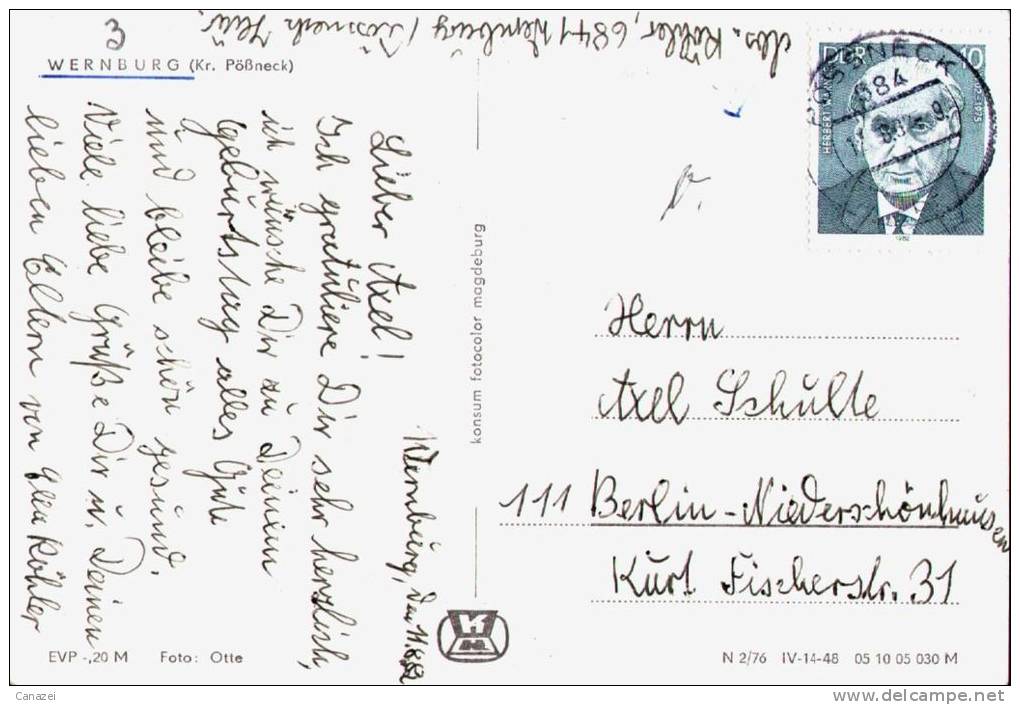 Abs. Köhler, 6841 Wernburg / Pössneck Thür.
3
WERNBURG (Kr. Pößneck)
Wernburg, den 11.8.82
Lieber Axel!
Ich gratuliere Dir sehr herzlich,
ich wünsche Dir zu Deinem
Geburtstag alles Gute
und bleibe schön gesund.
Viele liebe Grüße Dir u. Deinen
lieben Eltern von Köhler
konsum fotocolor magdeburg
DDR 10
1982
PÖSSNECK
684
Herrn
Axel Schulte
111 Berlin-Niederschönhausen
Kurt Fischerstr. 31
K
EVP -,20 M Foto: Otte
N 2/76 IV-14-48 05 10 05 030 M
Canazei
delcampe.net